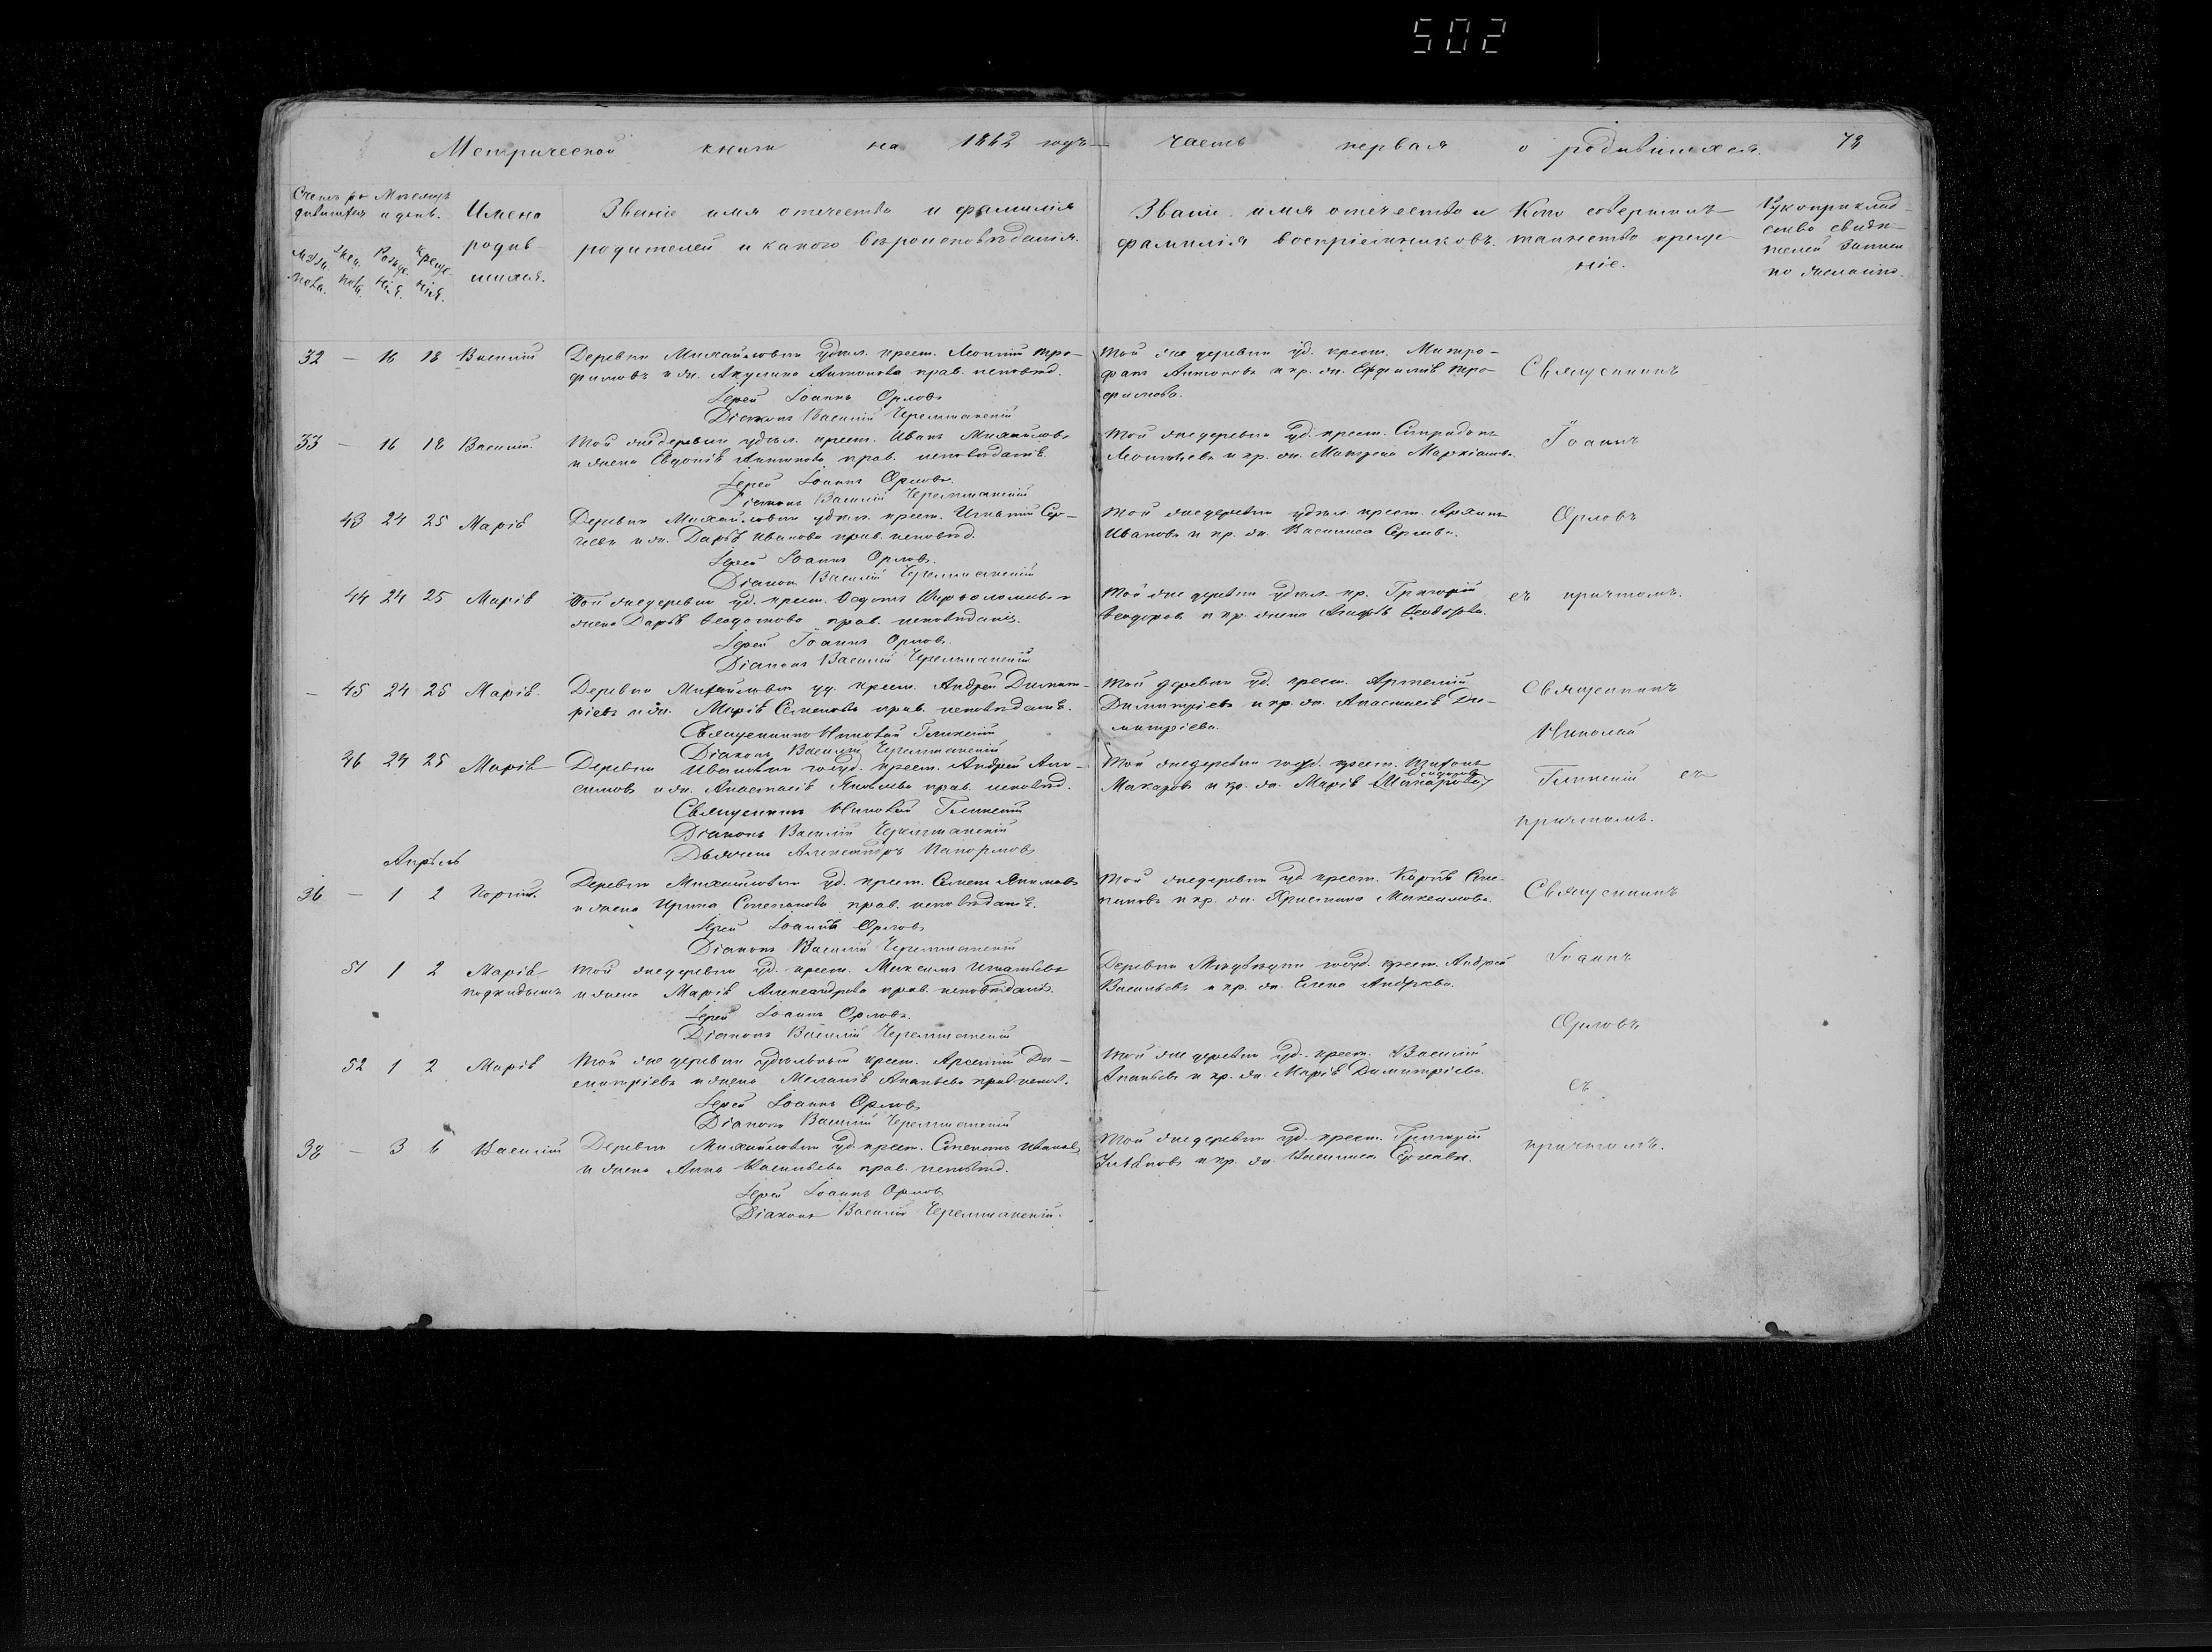 502
Метрической книги на 1862 годъ часть первая о родившихся. 78
Счетъ ро- Месяцъ
дившихся и день.
Имена
родив-
шихся.
Званіе имя отечество и фамилія
родителей и какого вѣроисповѣданія.
Званіе имя отечество и
фамилія воспріемниковъ.
Кто совершилъ
таинство креще-
ніе.
Рукоприклад-
ство свидѣ-
телей записи
по желанію.
32 — 16 18 Василій
Деревни Михайловки удѣл. крест. Леонтій Тро-
фимовъ и ж. Акулина Антонова прав. исповѣд.
Іерей Іоаннъ Орловъ
Діаконъ Василій Черемшанскій
Той же деревни уд. крест. Митро-
фанъ Антоновъ и кр. ж. Евфимія Тро-
фимова.
Священникъ
33 — 16 18 Василій.
Той же деревни удѣл. крест. Иванъ Михайловъ
и жена Евдокія Антонова прав. исповѣданія.
Іерей Іоаннъ Орловъ.
Діаконъ Василій Черемшанскій
Той же деревни уд. крест. Спиридонъ
Леонтьевъ и кр. ж. Матрена
Іоаннъ
43 24 25 Марія
Деревни Михайловки удѣл. крест. Игнатій Сер-
геевъ и ж. Дарья Иванова прав. исповѣд.
Іерей Іоаннъ Орловъ.
Діаконъ Василій Черемшанскій
Той же деревни удѣл. крест.
Ивановъ и кр. ж. Василиса Сергеева.
Орловъ
44 24 25 Марія
Той же деревни уд. крест.
жена Дарья Ѳедотова прав. исповѣданія.
Іерей Іоаннъ Орловъ.
Діаконъ Василій Черемшанскій
Той же деревни удѣл. кр. Григорій
Ѳеодоровъ и кр. жена
съ причтомъ.
— 45 24 25 Марія.
Деревни Михайловки уд. крест. Андрей Димит-
ріевъ и ж. Марія Семенова прав. исповѣданія.
Священникъ Николай Глинскій
Діаконъ Василій Черемшанскій
Той деревни уд. крест. Артемій
Димитріевъ и кр. ж. Анастасія Ди-
митріева.
Священникъ
Николай
46 24 25 Марія
Деревни Ивановки госуд. крест. Андрей
и ж. Анастасія Яковлева прав. исповѣд.
Священникъ Николай Глинскій
Діаконъ Василій Черемшанскій
Дьячекъ Александръ
Той же деревни госуд. крест.
Макаровъ и кр. ж. Марія
Глинскій съ
причтомъ.
Апрѣль
36 — 1 2
Деревни Михайловки уд. крест. Семенъ
и жена Ирина Степанова прав. исповѣданія.
Іерей Іоаннъ Орловъ
Діаконъ Василій Черемшанскій
Той же деревни уд. крест. Карпъ Сте-
пановъ и кр. ж. Христина Максимова.
Священникъ
51 1 2 Марія
подкидышъ
Той же деревни уд. крест. Максимъ Игнатьевъ
и жена Марія Александрова прав. исповѣданія.
Іерей Іоаннъ Орловъ.
Діаконъ Василій Черемшанскій
Деревни госуд. крест. Андрей
Васильевъ и кр. ж. Елена Андреева.
Іоаннъ
Орловъ
52 1 2 Марія
Той же деревни удѣльный крест. Арсеній Ди-
митріевъ и жена Меланія Ананьева прав. испов.
Іерей Іоаннъ Орловъ
Діаконъ Василій Черемшанскій
Той же деревни уд. крест. Василій
Ананьевъ и кр. ж. Марія Димитріева.
съ
38 — 3 6 Василій
Деревни Михайловки уд. крест. Степанъ Ивановъ
и жена Анна Васильева прав. исповѣд.
Іерей Іоаннъ Орловъ
Діаконъ Василій Черемшанскій.
Той же деревни уд. крест. Григорій
и кр. ж. Василиса
причтомъ.